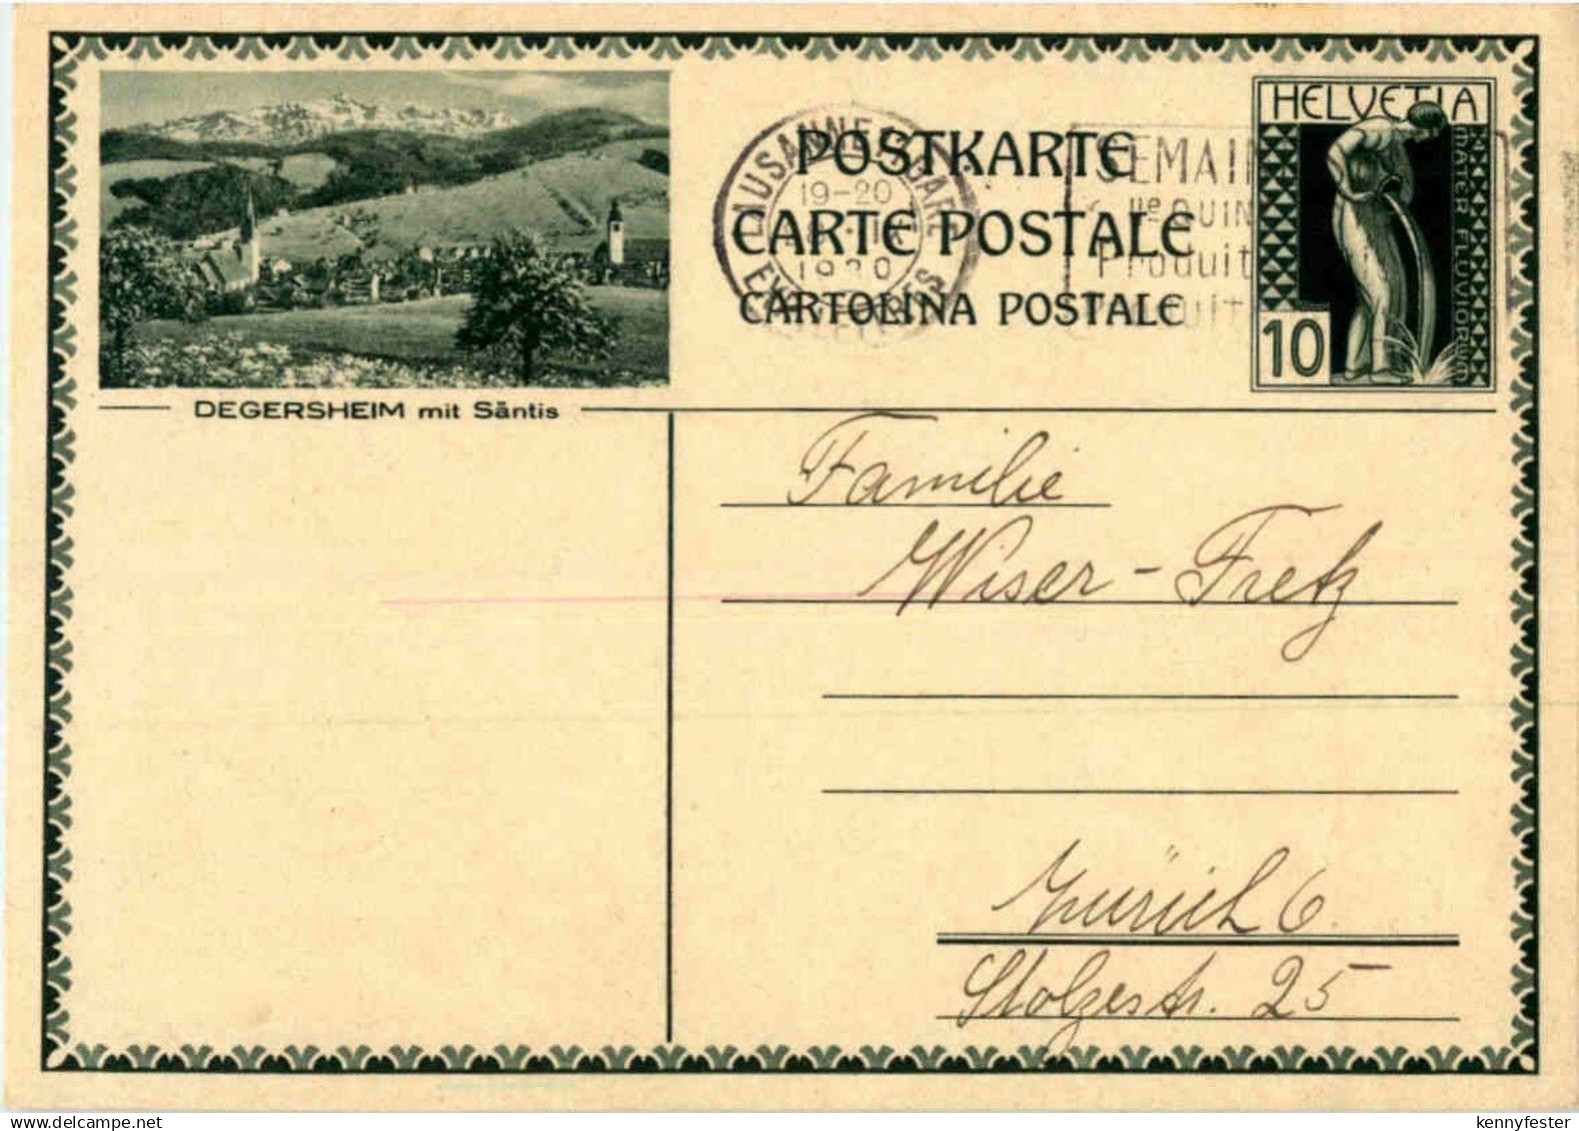 HELVETIA
MATER FLUVIORUM
10
POSTKARTE
CARTE POSTALE
CARTOLINA POSTALE
LAUSANNE GARE
19-20
SEMAI
IIe QUIN
Produit
DEGERSHEIM mit Säntis
Familie
Wiser - Fretz
Zürich 6.
Stolzestr. 25
kennyfester